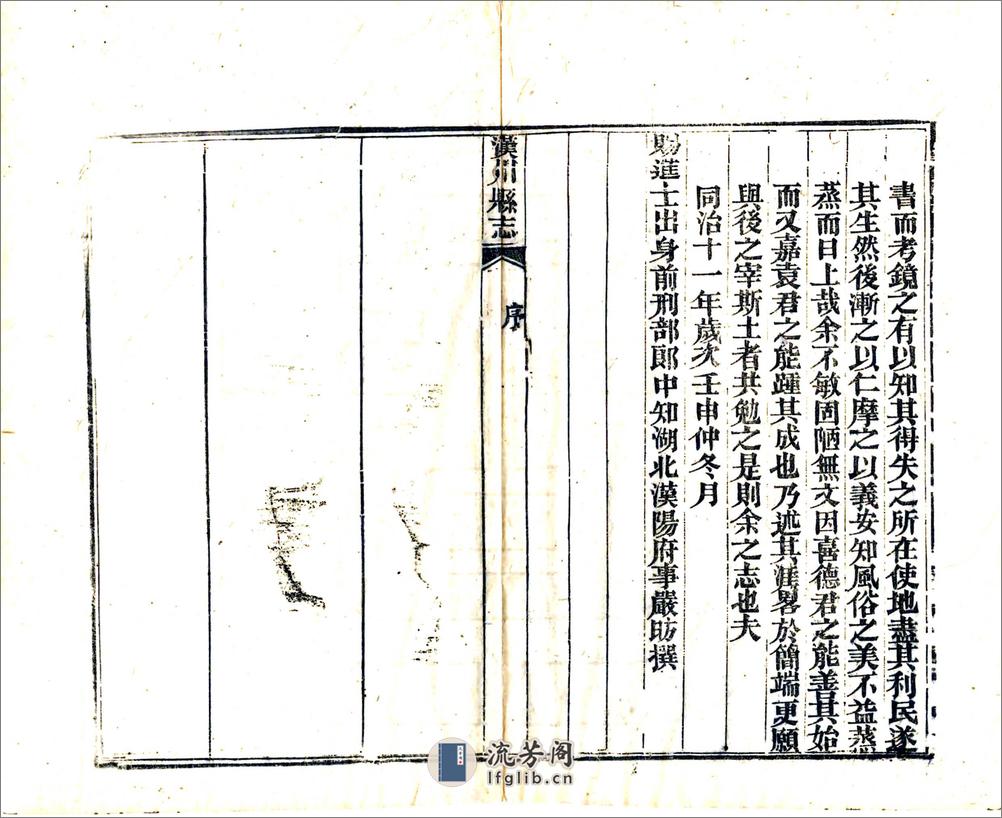 書而考鏡之有以知其得失之所在使地盡其利民遂
其生然後漸之以仁摩之以義安知風俗之美不益蒸
蒸而日上哉余不敏固陋無文因喜德君之能善其始
而又嘉袁君之能踵其成也乃述其涯畧於簡端更願
與後之宰斯土者共勉之是則余之志也夫
同治十一年歲次壬申仲冬月
賜進士出身前刑部郎中知湖北漢陽府事嚴昉撰
漢川縣志
序
流芳阁
lfglib.cn